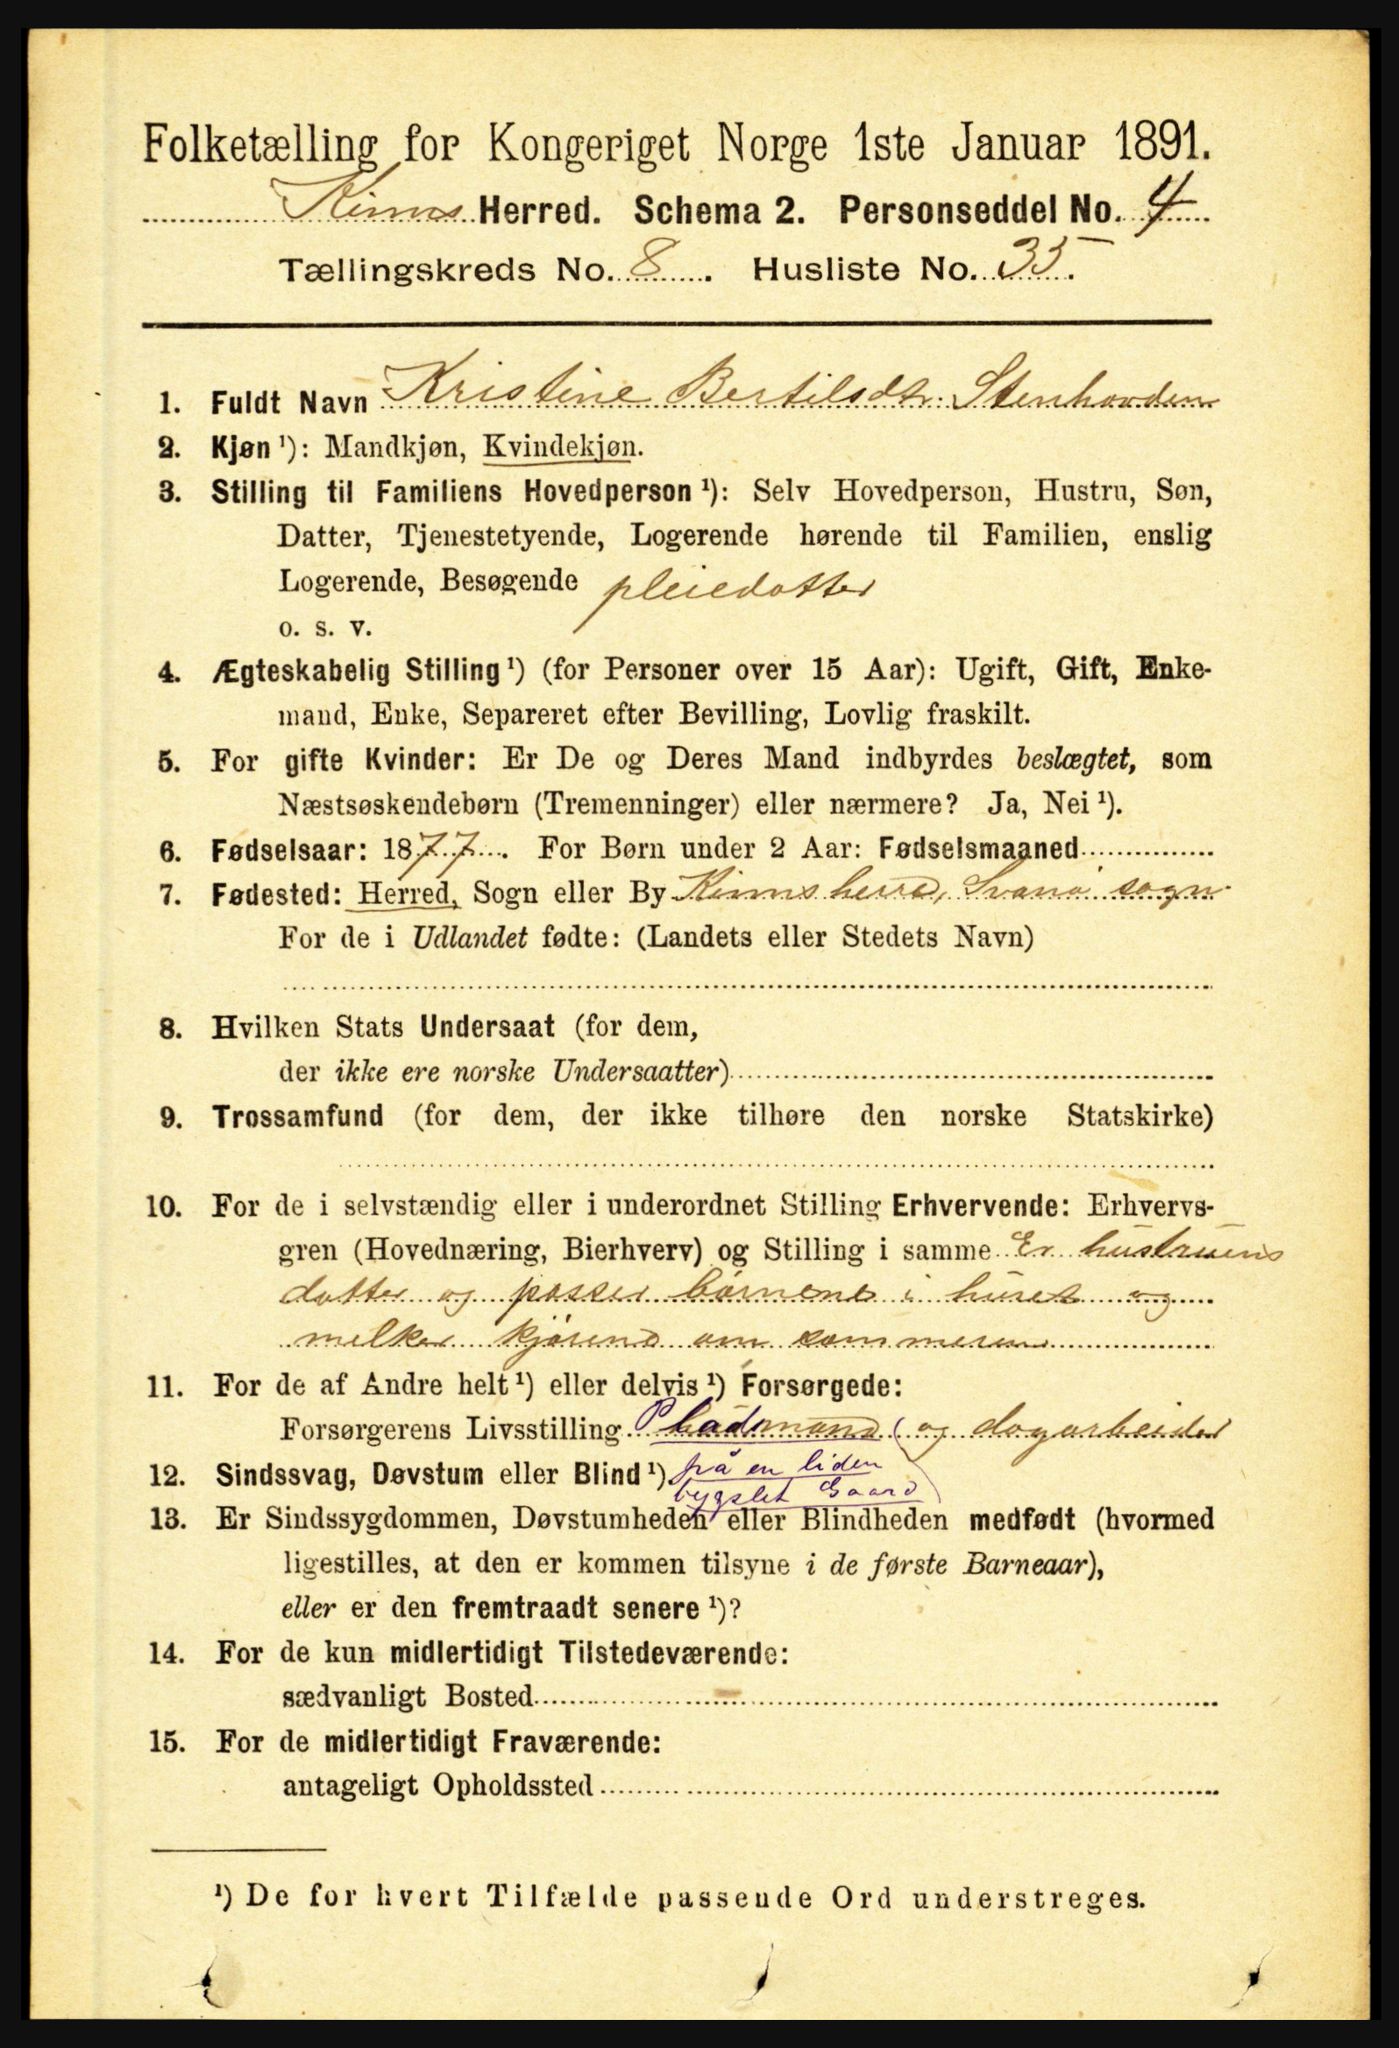 Folketælling for Kongeriget Norge 1ste Januar 1891.
Kinns Herred. Schema 2. Personseddel No. 4
Tællingskreds No. 8. Husliste No. 35.
1. Fuldt Navn Kristine Bertilsdtr. Stenhovden
2. Kjøn ¹): Mandkjøn, Kvindekjøn.
3. Stilling til Familiens Hovedperson ¹): Selv Hovedperson, Hustru, Søn,
Datter, Tjenestetyende, Logerende hørende til Familien, enslig
Logerende, Besøgende pleiedatter
o. s. v.
4. Ægteskabelig Stilling ¹) (for Personer over 15 Aar): Ugift, Gift, Enke-
mand, Enke, Separeret efter Bevilling, Lovlig fraskilt.
5. For gifte Kvinder: Er De og Deres Mand indbyrdes beslægtet, som
Næstsøskendebørn (Tremenninger) eller nærmere? Ja, Nei ¹).
6. Fødselsaar: 1877. For Børn under 2 Aar: Fødselsmaaned
7. Fødested: Herred, Sogn eller By Kinns herred, Svanø sogn.
For de i Udlandet fødte: (Landets eller Stedets Navn)
8. Hvilken Stats Undersaat (for dem,
der ikke ere norske Undersaatter)
9. Trossamfund (for dem, der ikke tilhøre den norske Statskirke)
10. For de i selvstændig eller i underordnet Stilling Erhvervende: Erhvervs-
gren (Hovednæring, Bierhverv) og Stilling i samme Er hustruens
datter og passer børnene i huset og
melker kjørene om sommeren
11. For de af Andre helt ¹) eller delvis ¹) Forsørgede:
Forsørgerens Livsstilling Pladsmand og dagarbeider
12. Sindssvag, Døvstum eller Blind ¹). på en liden
bygslet Gaard
13. Er Sindssygdommen, Døvstumheden eller Blindheden medfødt (hvormed
ligestilles, at den er kommen tilsyne i de første Barneaar),
eller er den fremtraadt senere ¹)?
14. For de kun midlertidigt Tilstedeværende:
sædvanligt Bosted
15. For de midlertidigt Fraværende:
antageligt Opholdssted
¹) De for hvert Tilfælde passende Ord understreges.